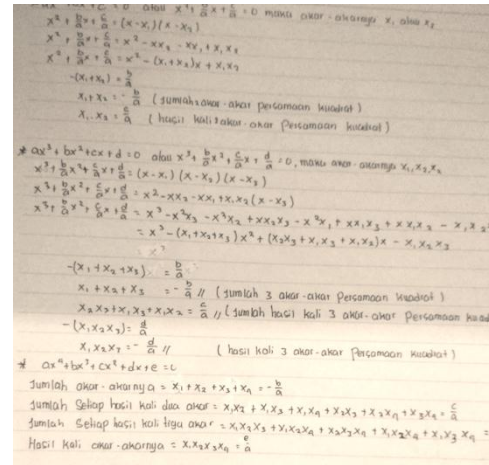 ax² + bx + c = 0 atau x² + b/a x + c/a = 0 maka akar-akarnya x₁ atau x₂
x² + b/a x + c/a = (x - x₁)(x - x₂)
x² + b/a x + c/a = x² - xx₂ - xx₁ + x₁x₂
x² + b/a x + c/a = x² - (x₁+x₂)x + x₁x₂
-(x₁+x₂) = b/a
x₁ + x₂ = - b/a (jumlah 2 akar-akar persamaan kuadrat)
x₁ . x₂ = c/a (hasil kali 2 akar-akar Persamaan kuadrat)
* ax³ + bx² + cx + d = 0 atau x³ + b/a x² + c/a x + d/a = 0, maka akar-akarnya x₁, x₂, x₃
x³ + b/a x² + c/a x + d/a = (x - x₁)(x - x₂)(x - x₃)
x³ + b/a x² + c/a x + d/a = x² - xx₂ - xx₁ + x₁x₂ (x - x₃)
x³ + b/a x² + c/a x + d/a = x³ - x²x₃ - x²x₂ + xx₂x₃ - x²x₁ + xx₁x₃ + xx₁x₂ - x₁x₂
= x³ - (x₁+x₂+x₃)x² + (x₂x₃ + x₁x₃ + x₁x₂)x - x₁x₂x₃
-(x₁ + x₂ + x₃) = b/a
x₁ + x₂ + x₃ = - b/a // (jumlah 3 akar-akar Persamaan kuadrat)
x₂x₃ + x₁x₃ + x₁x₂ = c/a // (Jumlah hasil kali 3 akar-akar Persamaan kuad
-(x₁x₂x₃) = d/a
x₁x₂x₃ = - d/a // (hasil kali 3 akar-akar Persamaan kuadrat)
* ax⁴ + bx³ + cx² + dx + e = 0
Jumlah akar-akarnya = x₁ + x₂ + x₃ + x₄ = - b/a
Jumlah Setiap hasil kali dua akar = x₁x₂ + x₁x₃ + x₁x₄ + x₂x₃ + x₂x₄ + x₃x₄ = c/a
Jumlah Setiap hasil kali tiga akar = x₁x₂x₃ + x₁x₂x₄ + x₂x₃x₄ + x₁x₂x₄ + x₁x₃x₄ =
Hasil kali akar-akarnya = x₁x₂x₃x₄ = e/a